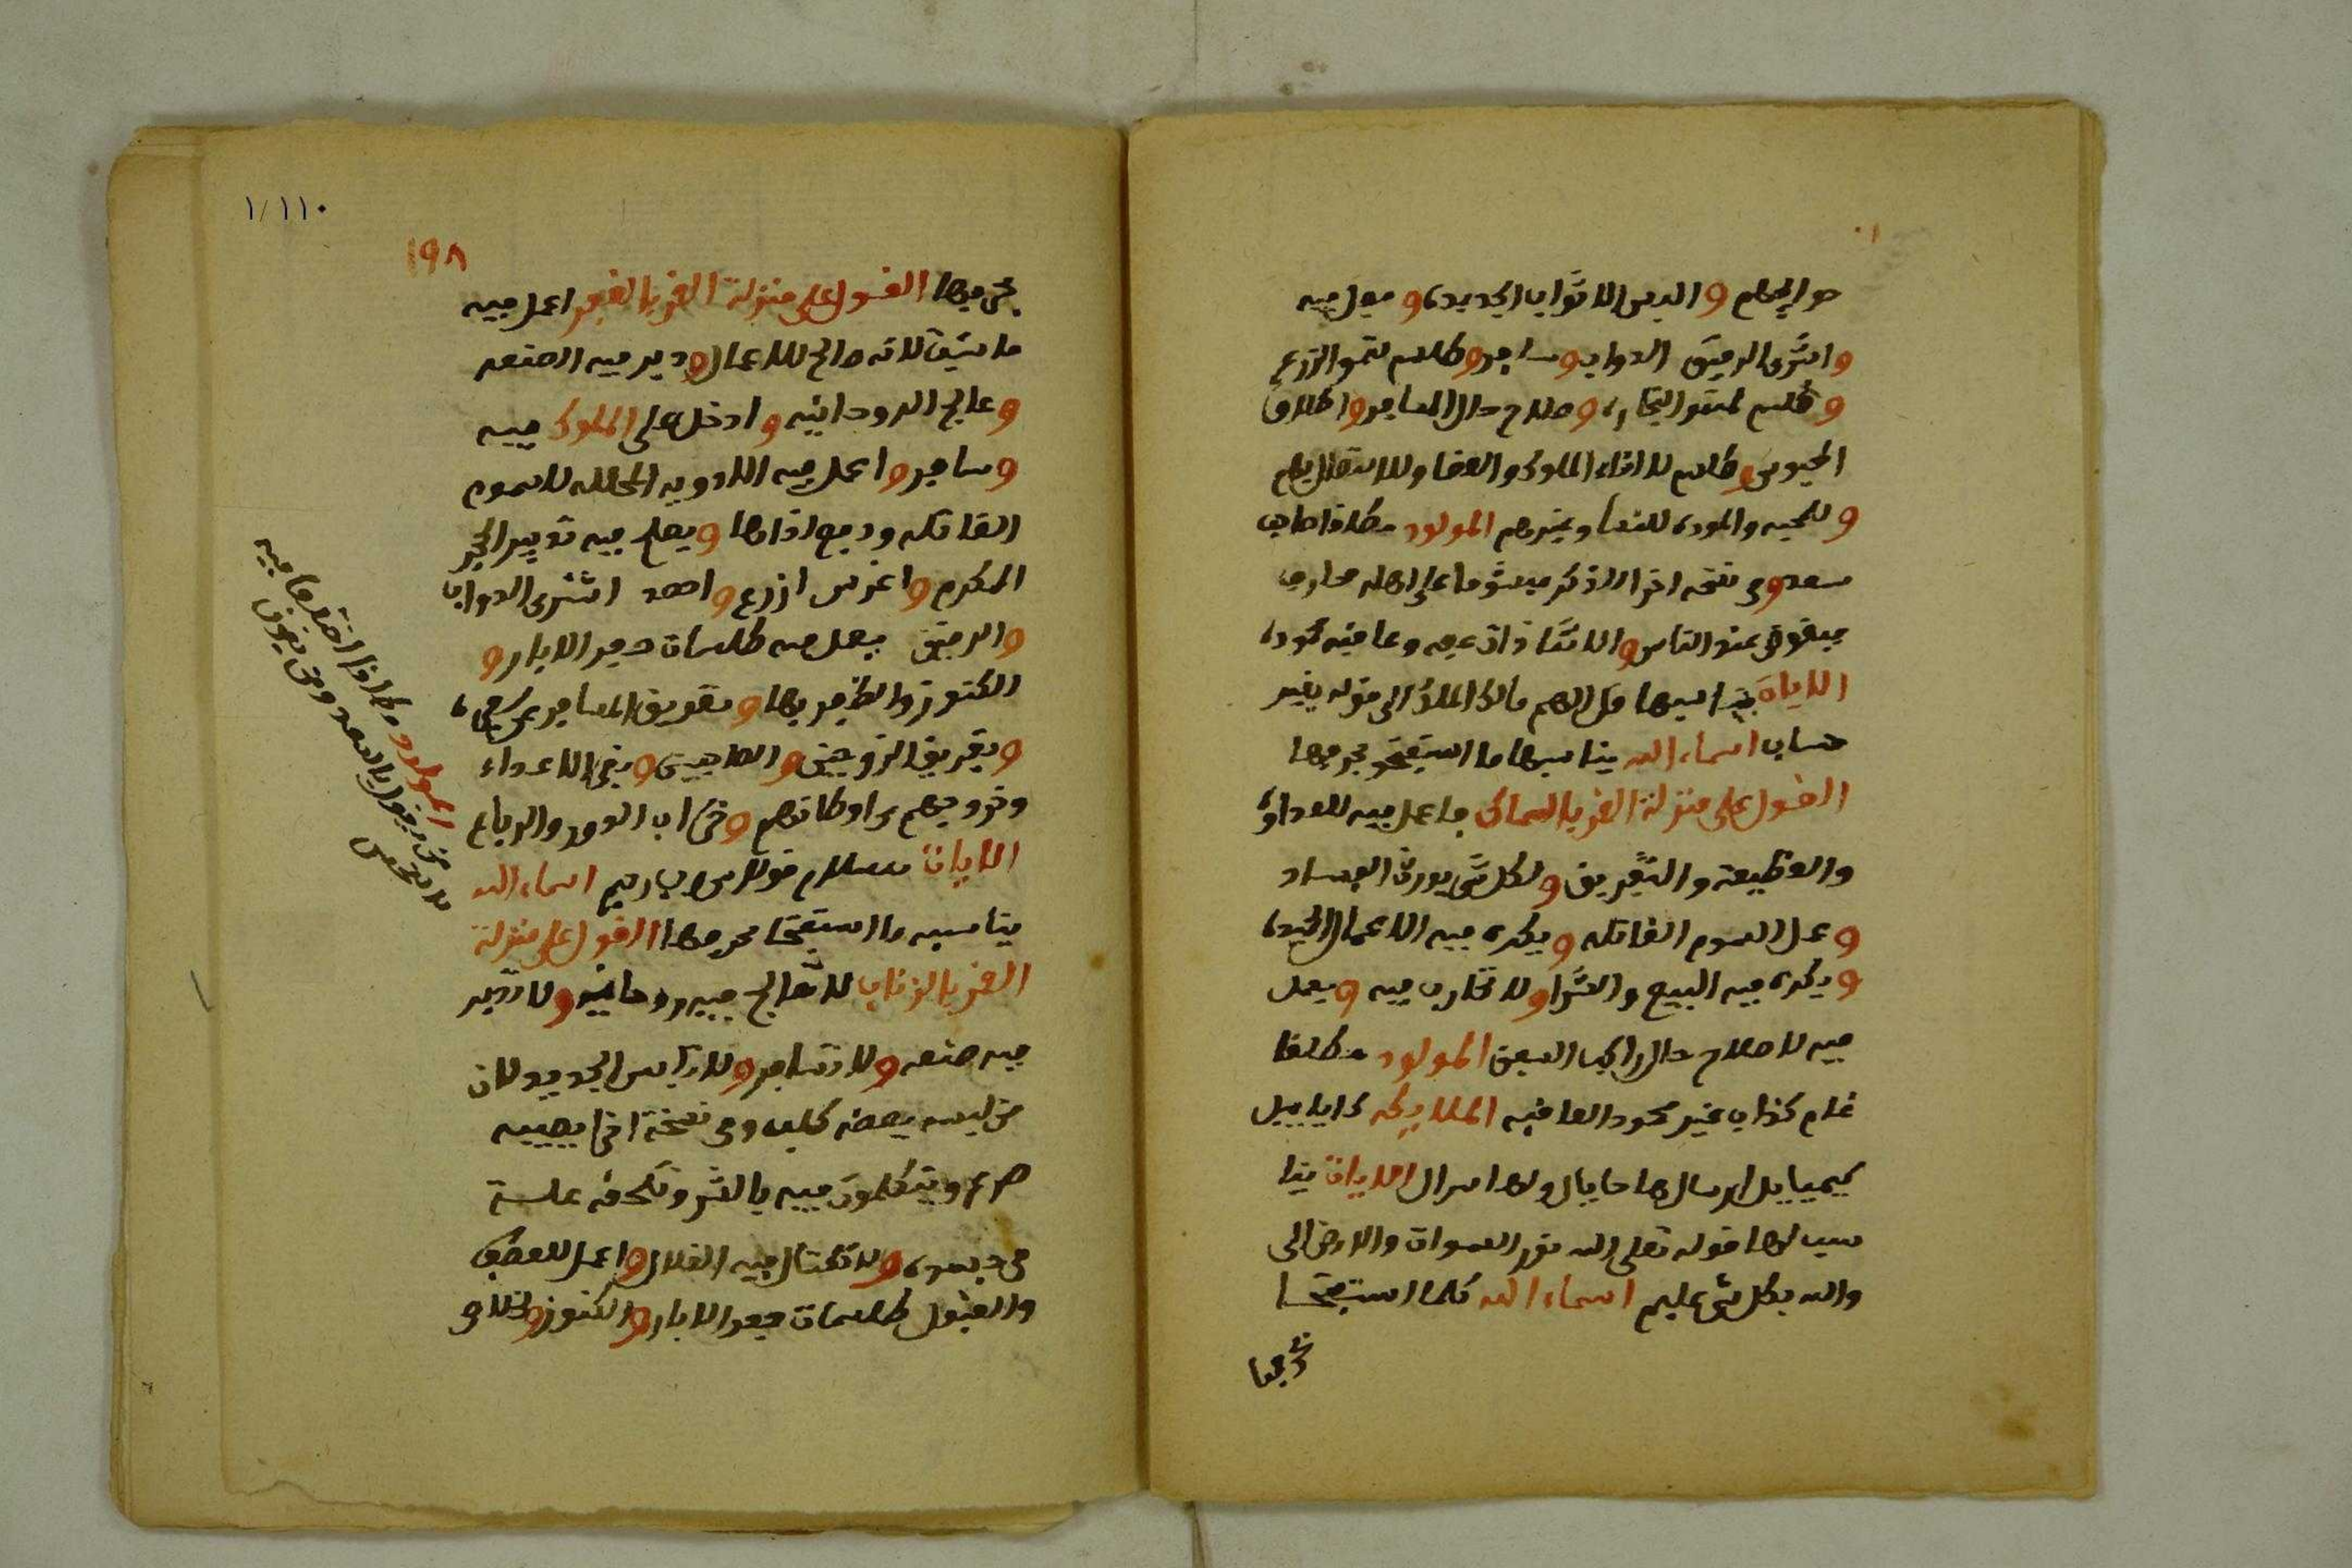 حوايجهم و البس الاثواب الجديده و فيعل فيه
واشترى الرقيق الدواب وسافر وطلسم لنمو الزرع
و طلسم لنمو التجاره وصلاح حال المسافر واطلاق
المحبوس وطلسم للقاء الملوك والقضا وللاتصال بهم
و للمحبه والموده للنسا وغيرهم المولود مطلقا صاحب
سعد وفي نسخه اخرا الذكر ميشوما على اهله محارف
ممقوت عند الناس والانثا ذات عيبه وعاقبه محموده
الايات يناسبها قل اللهم مالك الملك الى قوله بغير
حساب اسماء الله يناسبها ما استفتح بحرفها
القول على منزلة القمر بالسماك فاعمل فيه للعداوه
والقطيعة والتفريق ولكل شي يورث الفساد
و عمل السموم القاتله ويكره فيه الاعمال الجيده
و يكره فيه البيع والشرا ولا تحارب فيه ويعمل
فيه لاصلاح حال راكب السفن المولود مطلقا
نمام كذاب غير محمود العاقبه الملايكه
الايات ينا
سب لها قوله تعلى الله نور السموات والارض الى
والله بكل شي عليم اسماء الله كلما استفتحا
بحرفها
١/١١٠
١٩٨
بحرفها القول على منزلة القمر بالغفر اعمل فيه
ما شيت لانه صالح للاعمال ودبر فيه الصنعه
و عالج الروحانيه و ادخل على الملوك فيه
و سافر واعمل فيه الادويه المحلله للسموم
القاتله ودفع اذاها ويعلم فيه تدبير الحجر
المكرم واغرس ازرع واحصد اشترى الدواب
والرقيق يعمل فيه طلسمات حفر الابار و
الكنوز والظفر بها وتعويق المسافر عن سفره
و تفريق الزوجين و الصاحبين ونفي الاعداء
وخروجهم من اوطانهم وخراب الدور والرباع
الايات سلام قولا من رب رحيم اسماء الله
يناسبه ما استفتحا بحرفها القول على منزلة
القمر بالزبانا لا تعالج فيه روحانيه ولا تدبر
فيه صنعه ولا تسافر ولا تلبس الجديد لان
من لبسه يعضه كلب وفي نسخة اخرا يصيبه
صرع ويتكلمون فيه بالشر وتلحقه علـة
في جسده ولا تكتال فيه الغلال واعمل للعطف
والقبول طلسمات حفر الابار والكنوز وخلاص
المولود وكلما اختلفا فيه
من يقول بالسعد ومن يقول
بالنحس